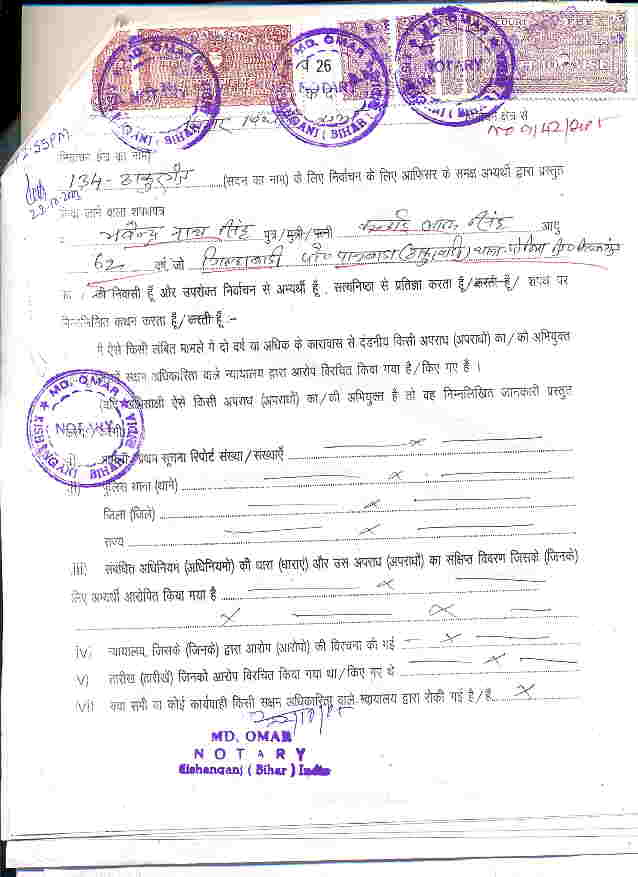 MD. OMAR NOTARY KISHANGANJ (BIHAR) INDIA
MD. OMAR 26 NOTARY KISHANGANJ (BIHAR) INDIA
MD. OMAR NOTARY KISHANGANJ (BIHAR) INDIA
COURT FEE
क्षेत्र से
निर्वाचन क्षेत्र का नाम)
134- ठाकुरगंज (सदन का नाम) के लिए निर्वाचन के लिए आफिसर के समक्ष अभ्यर्थी द्वारा प्रस्तुत
किया जाने वाला शपथपत्र
सिंह पुत्र/पुत्री/पत्नी लाल सिंह आयु
62 वर्ष, जो
का/की निवासी हूँ और उपरोक्त निर्वाचन से अभ्यर्थी हूँ, सत्यनिष्ठा से प्रतिज्ञा करता हूँ/करती हूँ/ शपथ पर
निम्नलिखित कथन करता हूँ/करती हूँ :-
मैं ऐसे किसी लंबित मामले में दो वर्ष या अधिक के कारावास से दंडनीय किसी अपराध (अपराधों) का/की अभियुक्त
सक्षम अधिकारिता वाले न्यायालय द्वारा आरोप विरचित किया गया है/किए गए हैं ।
ऐसे किसी अपराध (अपराधों) का/की अभियुक्त है तो वह निम्नलिखित जानकारी प्रस्तुत
MD. OMAR NOTARY KISHANGANJ (BIHAR) INDIA
प्रथम सूचना रिपोर्ट संख्या/संख्याएँ x
पुलिस थाना (थाने) x
जिला (जिले) x
राज्य x
iii) संबंधित अधिनियम (अधिनियमों) की धारा (धाराएं) और उस अपराध (अपराधों) का संक्षिप्त विवरण जिसके (जिनके)
लिए अभ्यर्थी आरोपित किया गया है x
x x
iv) न्यायालय, जिसके (जिनके) द्वारा आरोप (आरोपों) की विरचना की गई x
v) तारीख (तारीखें) जिनको आरोप विरचित किया गया था/किए गए थे x
vi) क्या सभी या कोई कार्यवाही किसी सक्षम अधिकारिता वाले न्यायालय द्वारा रोकी गई है/हैं x
MD. OMAR
NOTARY
Kishanganj ( Bihar ) India